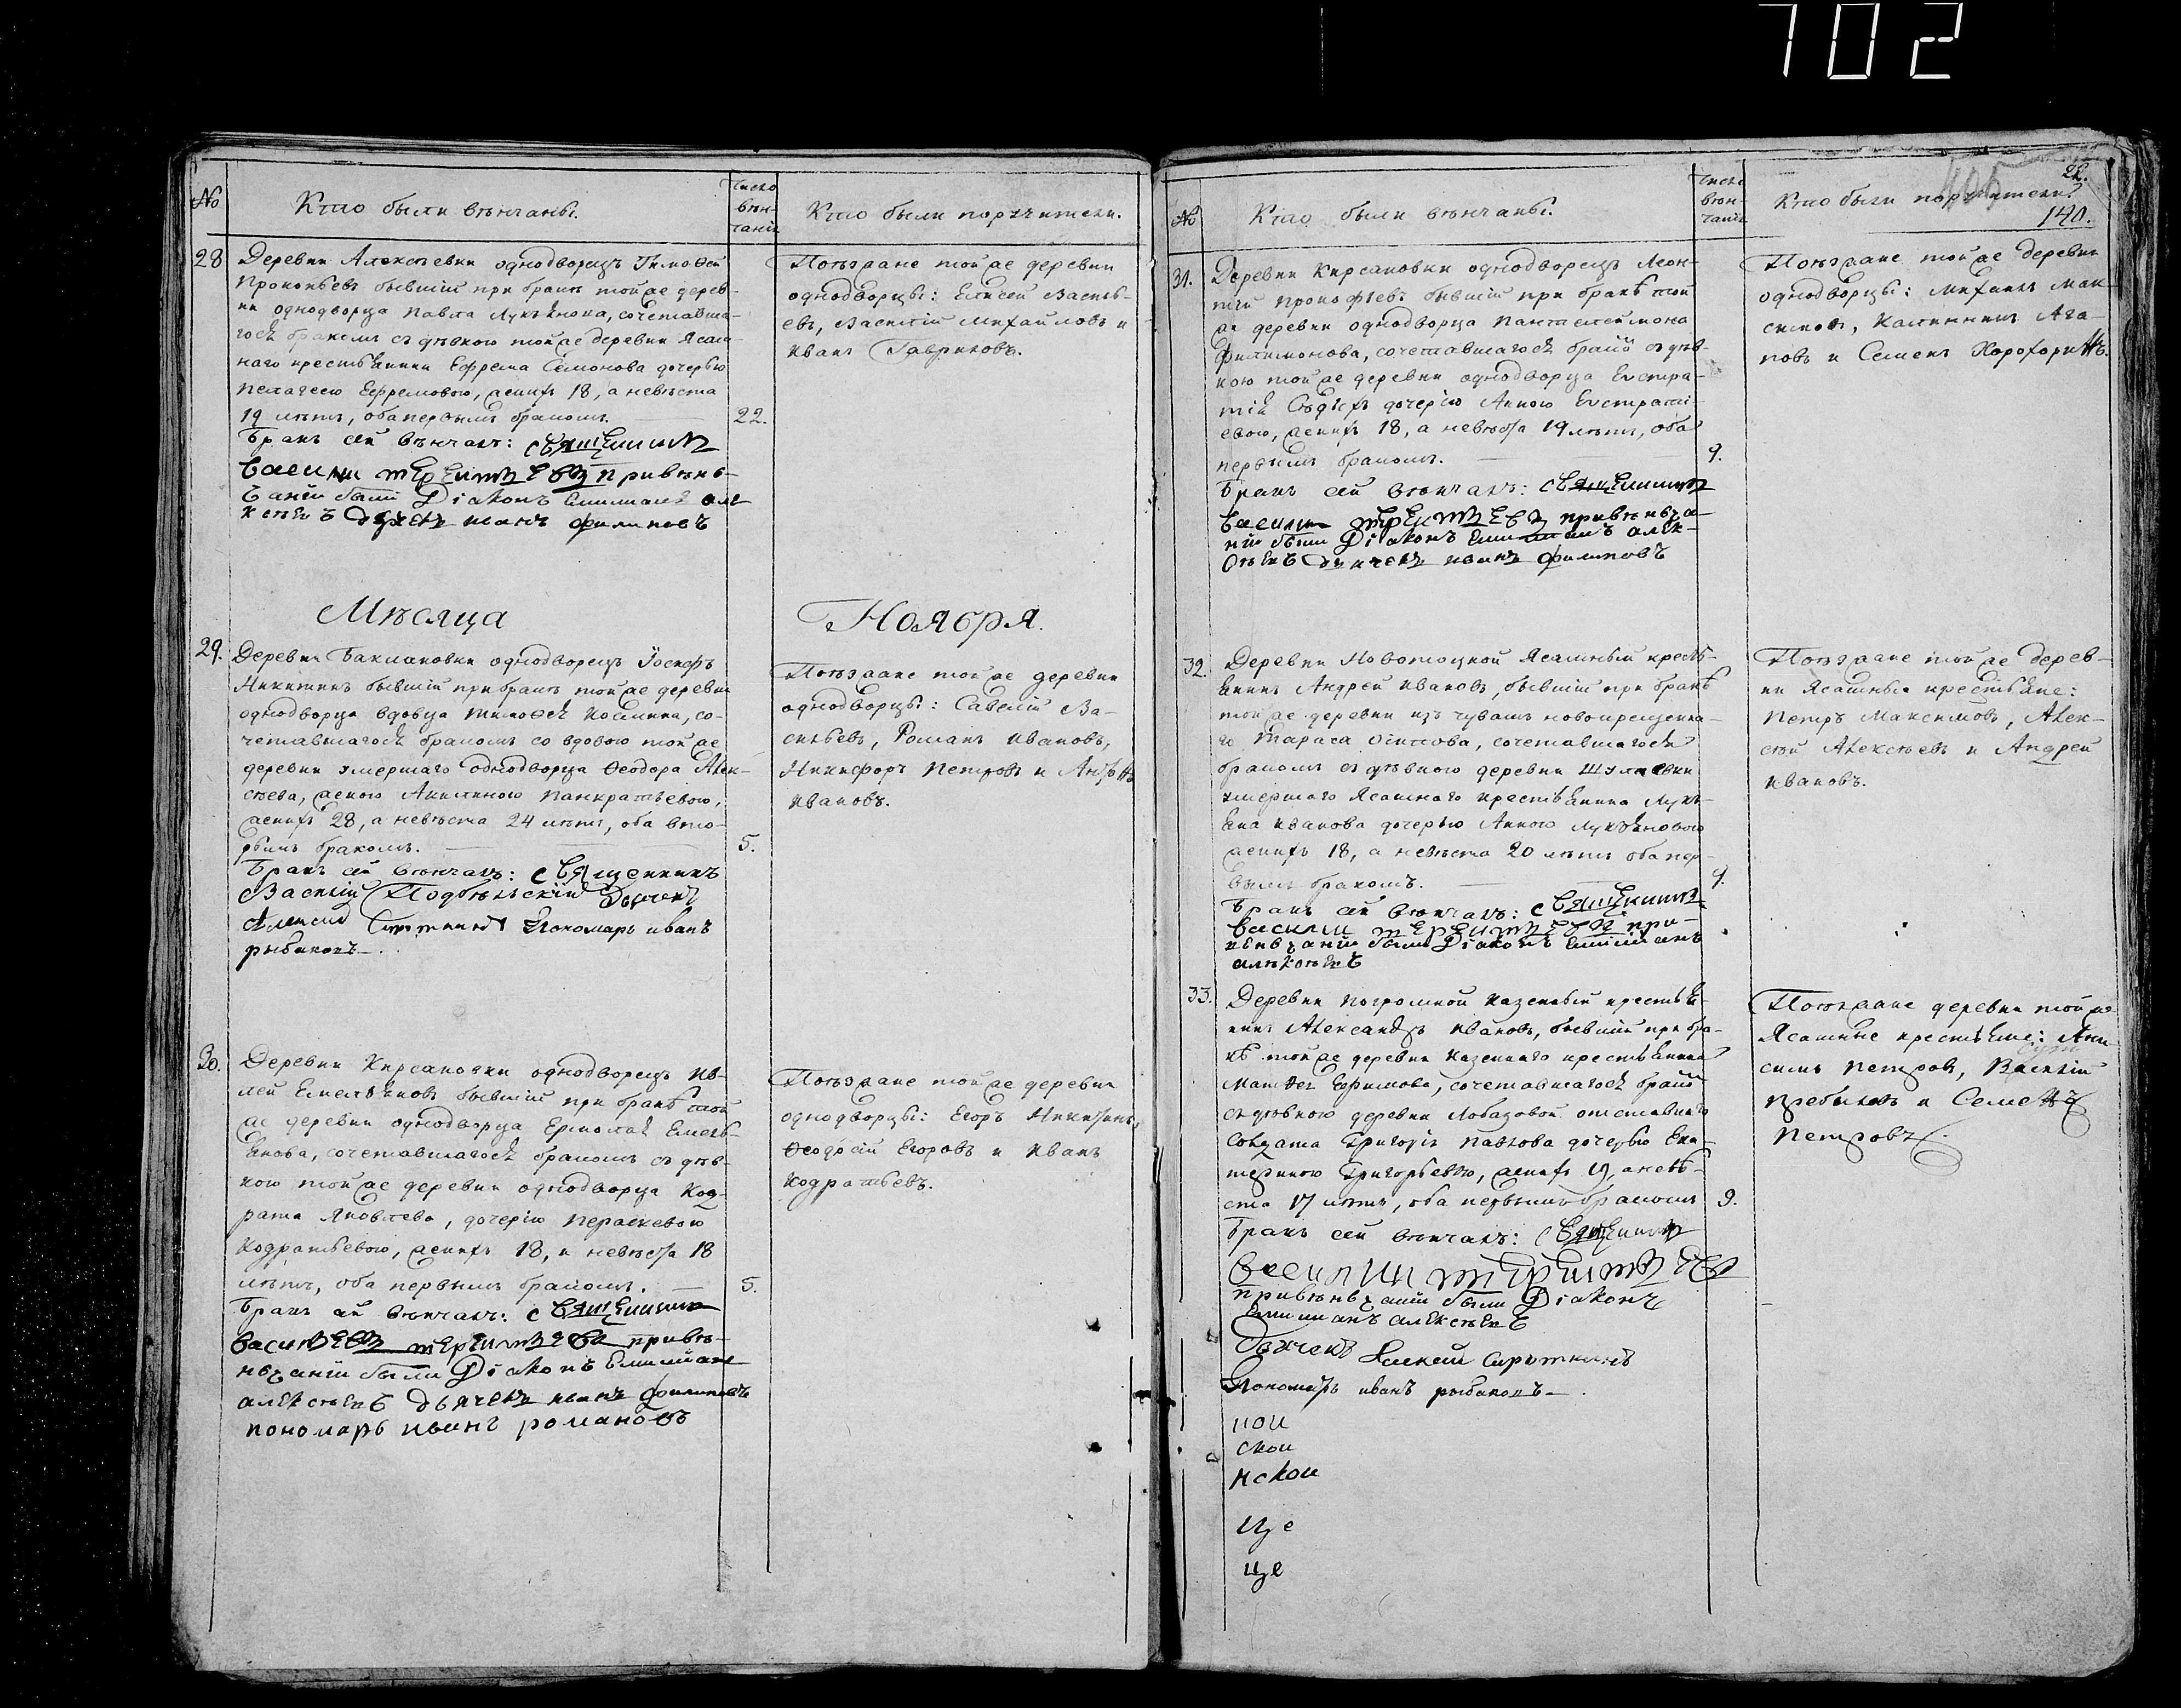 702
№
Кто были вѣнчаны.
Число
вѣн-
чанія
Кто были поручители.
28
Деревни Алексѣевки однодворецъ Тимоѳей
Прокопьевъ бывшій при бракѣ той же дерев-
ни однодворца Павла Лукьянова, сочетавша-
гося бракомъ съ дѣвкою той же деревни Ясаш-
наго крестьянина Ефрема Семонова дочерью
Пелагеею Ефремовою, жених 18, а невѣста
19 лѣтъ, оба первымъ бракомъ.
22.
Бракъ сей вѣнчалъ: священникъ
при вѣнь-
чаніи были Діаконъ Емилианъ але
ксѣевъ дьячекъ иванъ филиповъ
Поѣзжане той же деревни
однодворцы: Елисей Василь-
евъ, Василій Михайловъ и
Иванъ Гавриловъ.
Мѣсяца
Ноября.
29.
Деревни Баклановки однодворецъ Іосифъ
Никитинъ бывшій при бракѣ той же деревни
однодворца вдовца Тимоѳея Космина, со-
четавшагося бракомъ со вдовою той же
деревни умершаго однодворца Ѳеодора Алек-
сѣева, женою Акилиною Панкратьевою,
жених 28, а невѣста 24 лѣтъ, оба вто-
рымъ бракомъ.
5.
Бракъ сей вѣнчалъ: священникъ
Василій Подбѣльскій Дьячекъ
Алексий Пономарь иванъ
рыбаковъ
Поѣзжане той же деревни
однодворцы: Савелій Ва-
сильевъ, Романъ Ивановъ,
Никифоръ Петровъ и Антонъ
Ивановъ.
30.
Деревни Кирсановки однодворецъ Ив-
лей Емельяновъ бывшій при бракѣ той
же деревни однодворца Ермолая Емель-
янова, сочетавшагося бракомъ съ дѣв-
кою той же деревни однодворца Код-
рата Яковлева, дочерію Пераскевою
Кодратьевою, жених 18, и невѣста 18
лѣтъ, оба первымъ бракомъ.
5.
Бракъ сей вѣнчалъ: священникъ
при вѣ-
нчаніи были Діаконъ Емилиан
алексѣевъ дьячекъ иванъ филиповъ
пономарь иванъ романовъ
Поѣзжане той же деревни
однодворцы: Егоръ Никитинъ,
Ѳеодосій Егоровъ и Иванъ
Кодратьевъ.
№
Кто были вѣнчаны.
Число
вѣн-
чанія
Кто были поручители.
28.
140.
31.
Деревни Кирсановки однодворецъ Леон-
тій Прокофьевъ бывшій при бракѣ той
же деревни однодворца Пантелеймона
Филимонова, сочетавшагося брако съ дѣв-
кою той же деревни однодворца Евстра-
тія дочерію Анною Евстраті-
евою, жених 18, а невѣста 19 лѣтъ, оба
первымъ бракомъ.
9.
Бракъ сей вѣнчалъ: священникъ
при вѣньча-
ніи были Діаконъ Емилианъ алек-
сѣевъ дьячекъ иванъ филиповъ
Поѣзжане той же деревни
однодворцы: Михаилъ Мак-
симовъ, Калинникъ Ага-
повъ и Семенъ
32.
Деревни Новотоцкой Ясашный кресть-
янинъ Андрей Ивановъ, бывшій при бракѣ
той же деревни изъ чувашъ новокрещенна-
го Тараса Осипова, сочетавшагося
бракомъ съ дѣвкою деревни
умершаго Ясашнаго крестьянина Лукь-
яна Иванова дочерью Анною Лукьяновою
жених 18, а невѣста 20 лѣтъ оба пер-
вымъ бракомъ.
9.
Бракъ сей вѣнчалъ: священникъ
при
вѣнчаніи были Діаконъ Емилианъ
алексѣевъ
Поѣзжане той же дерев-
ни Ясашные крестьяне:
Петръ Максимовъ, Алек-
сѣй Алексѣевъ и Андрей
Ивановъ.
33.
Деревни Погромной Казенный крестья-
нинъ Александръ Ивановъ, бывшій при бра-
кѣ той же деревни Казеннаго крестьянина
Матвея Ефимова, сочетавшагося брако
съ дѣвкою деревни Лобазовой отставнаго
Солдата Григорія Павлова дочерью Ека-
териною Григорьевою, жених 19, а невѣ-
ста 17 лѣтъ, оба первымъ бракомъ
9.
Бракъ сей вѣнчалъ: священникъ
при вѣньчаніи были Діаконъ
Емилианъ алексѣевъ
Дьячекъ Алексей Сироткинъ
Пономарь иванъ рыбаковъ
Поѣзжане деревни той же
Ясашные крестьяне: Ани-
симъ Петровъ, Василій
и Семенъ
Петровъ.
нои
скои
нскои
це
це